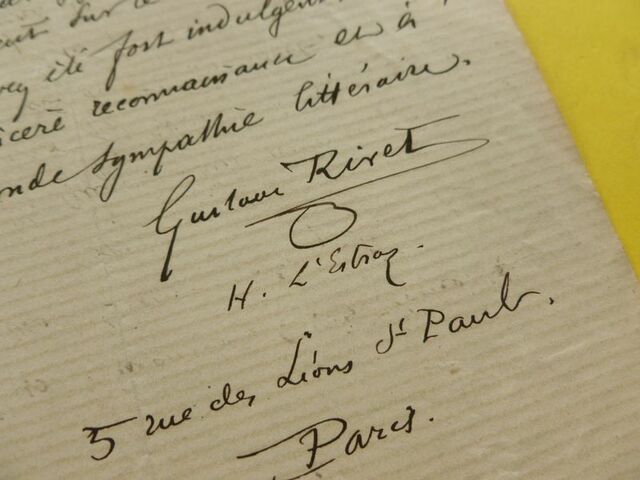 sur
été fort indulgent
reconnaissance et à
sympathie littéraire.
Gustave Rivet
H. L'Estraz.
5 rue des Lions St Paul,
Paris.